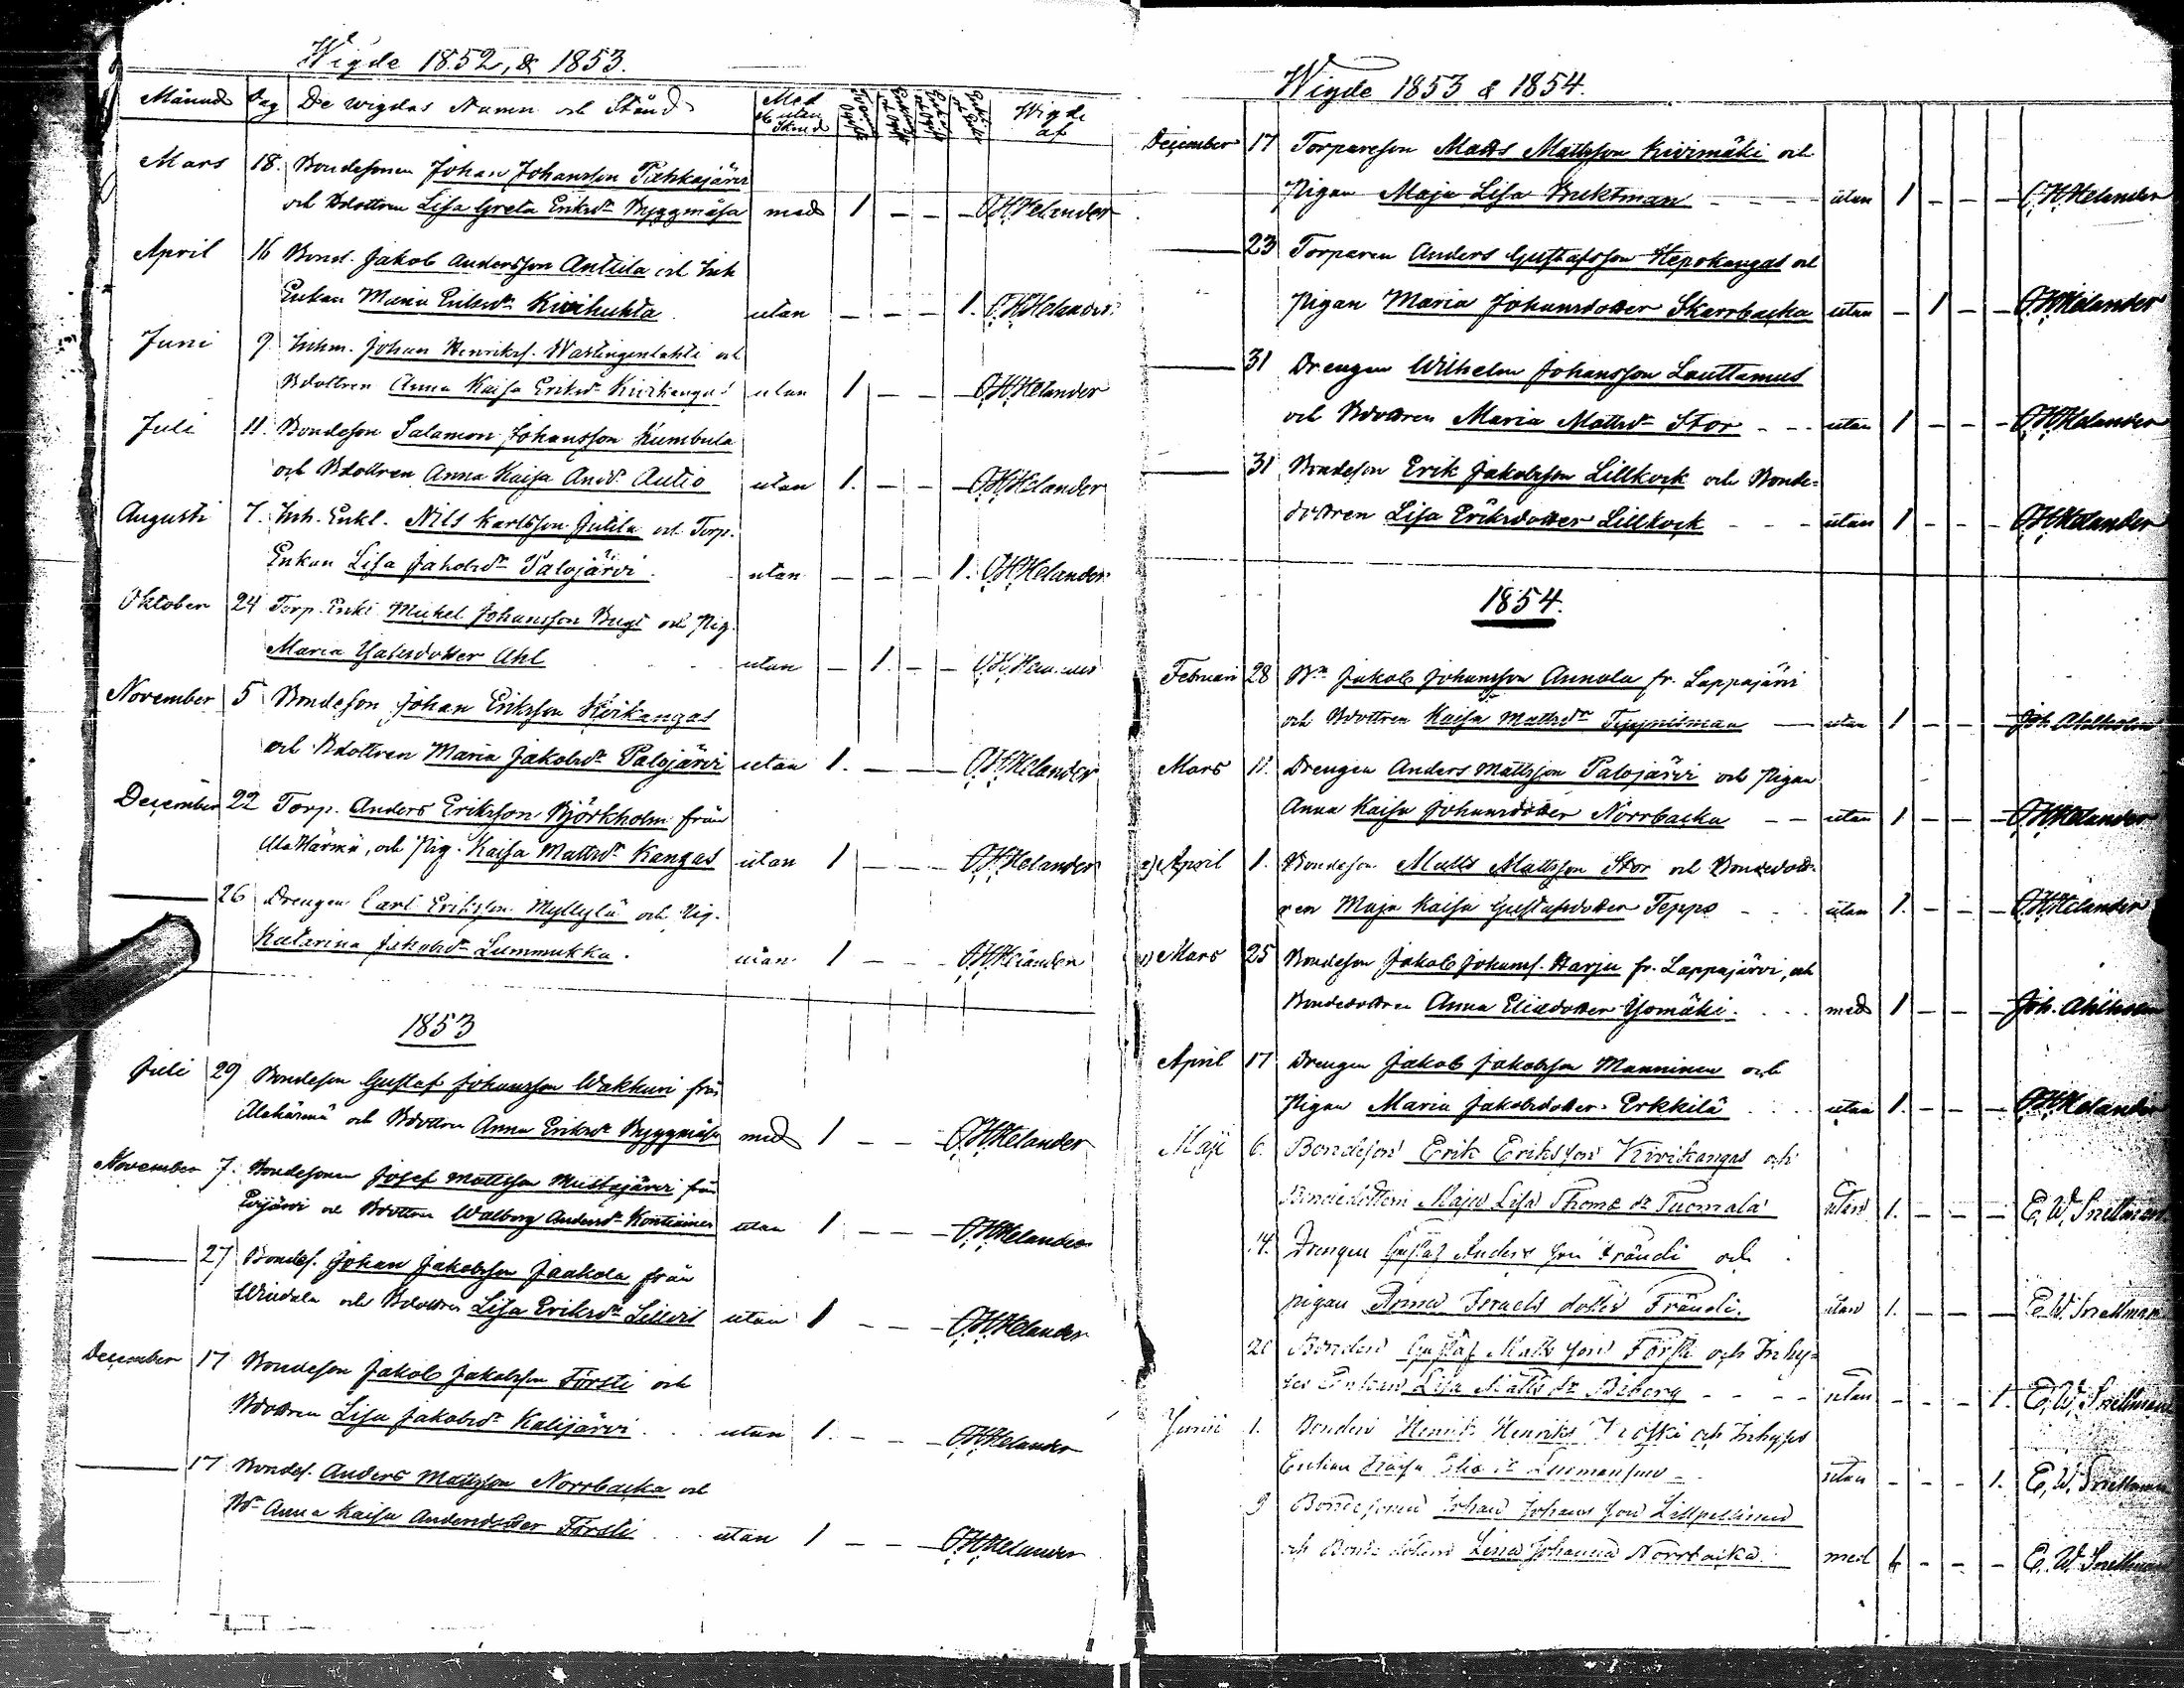 Wigde 1852, & 1853.
Månad Dag De wigdas Namn och Stånd Med el. utan Skrud Wigde af
Mars 18. Bondesonen Johan Johansson Pahkajärvi
och Bdottren Lisa Greta Eriksdr Byggmäsa med 1 – – – O.H.Helander
April 16 Bond. Jakob Andersson Antila och Inh
Enkan Maria Eriksdr Kivihuhta utan – – – 1. O.H.Helander
Juni 9 Inhm. Johan Henrikss. Wastingenlahti och
Bdottren Anna Kaisa Eriksdr Kivikangas utan 1 – – – O.H.Helander
Juli 11. Bondeson Salamon Johansson Kumbula
och Bdottren Anna Kaisa Andd. Autio utan 1. – – – O.H.Helander
Augusti 7. Inh. Enkl. Nils Karlsson Jutila och Torp.
Enkan Lisa Jakobsdr Palojärvi. utan – – – 1. O.H.Helander
Oktober 24 Torp. Enkl Mickel Johansson och Pig.
Maria dotter Ahl utan – 1. – – O.H.Helander
November 5 Bondeson Johan Eriksson Kivikangas
och Bdottren Maria Jakobsdr Palojärvi utan 1. – – – O.H.Helander
December 22 Torp. Anders Eriksson Björkholm från
Ala Härmä, och Pig. Kaisa Mattsdr Kangas utan 1 – – – O.H.Helander
26 Drengen Carl Eriksson Myllylä och Pig.
Katarina Jakobsdr Lummukka. utan 1 – – – O.H.Helander
1853
Juli 29 Bondeson Gustaf Johansson Wakkuri från
Alahärmä och Bdottren Anna Eriksdr Byggmäsa med 1 – – – O.H.Helander
November 7. Bondesonen Josef Mattsson Mustajärvi från
Evijärvi och Bdottren Walborg Andersdr Kontiainen utan 1 – – – O.H.Helander
27 Bondes. Johan Jakobsson Jaakola från
Windala och Bdottren Lisa Eriksdr utan 1 – – – O.H.Helander
December 17 Bondeson Jakob Jakobsson Försti och
Bdottren Lisa Jakobsdr Kalijärvi utan 1. – – – O.H.Helander
17 Bondes. Anders Mattsson Norrbacka och
Bdr Anna Kaisa Andersdotter Försti utan 1 – – – O.H.Helander
Wigde 1853 & 1854.
December 17 Torpareson Matts Mattsson Kivimäki och
Pigan Maja Lisa Bucktman – – – utan 1 – – – O.H.Helander
23 Torparen Anders Gustafsson Hepokangas och
Pigan Maria Johansdotter Skarrbacka utan – 1 – – O.H.Helander
31 Drengen Wilhelm Johansson Lauttamus
och Bdottren Maria Mattsdr Stor – – utan 1 – – – O.H.Helander
31 Bondeson Erik Jakobsson Lillkock och Bonde=
dottren Lisa Eriksdotter Lillkock – – – utan 1 – – – O.H.Helander
1854.
Februari 28 Bn Jakob Johansson Annala fr. Lappajärvi
och Bdottren Kaisa Mattsdr – utan 1 – – – Joh. Ahlholm
Mars 11. Drengen Anders Mattsson Palojärvi och Pigan
Anna Kaisa Johansdotter Norrbacka – – utan 1 – – – O.H.Helander
2) April 1. Bondeson Matts Mattsson Stor och Bondedott-
ren Maja Kaisa Gustafsdotter Teppo – – utan 1. – – – O.H.Helander
1) Mars 25 Bondeson Jakob Johanss. Harju fr. Lappajärvi, och
Bondedottren Anna Eliedotter Yomäki. med 1 – – – Joh. Ahlholm
April 17 Drengen Jakob Jakobsson Manninen och
Pigan Maria Jakobsdotter Erkkilä utan 1. – – – O.H.Helander
Maji 6. Bondeson Erik Eriksson Kivikangas och
Bondedottern Maja Lisa Thome dr Tuomala utan 1. – – – E. W. Snellman
14. Drengen Gustaf Anders son Frändi och
pigan Anna Israels dotter Frändi. utan 1. – – – E. W. Snellman
20 Bonden Gustaf Matts son Försti och Inhy=
ses Enkan Lisa Matts dr Biberg – – – – utan – – – 1. E. W. Snellman
Junii 1. Bonden Henrik Henriks och Inhyses
Enkan Kaisa Elis dr utan – – – 1. E. W. Snellman
9 Bondesonen Johan Johans son Lillpellinen
och Bonde dottren Lisa Johanna Norrbacka. med 1 – – – E. W. Snellman